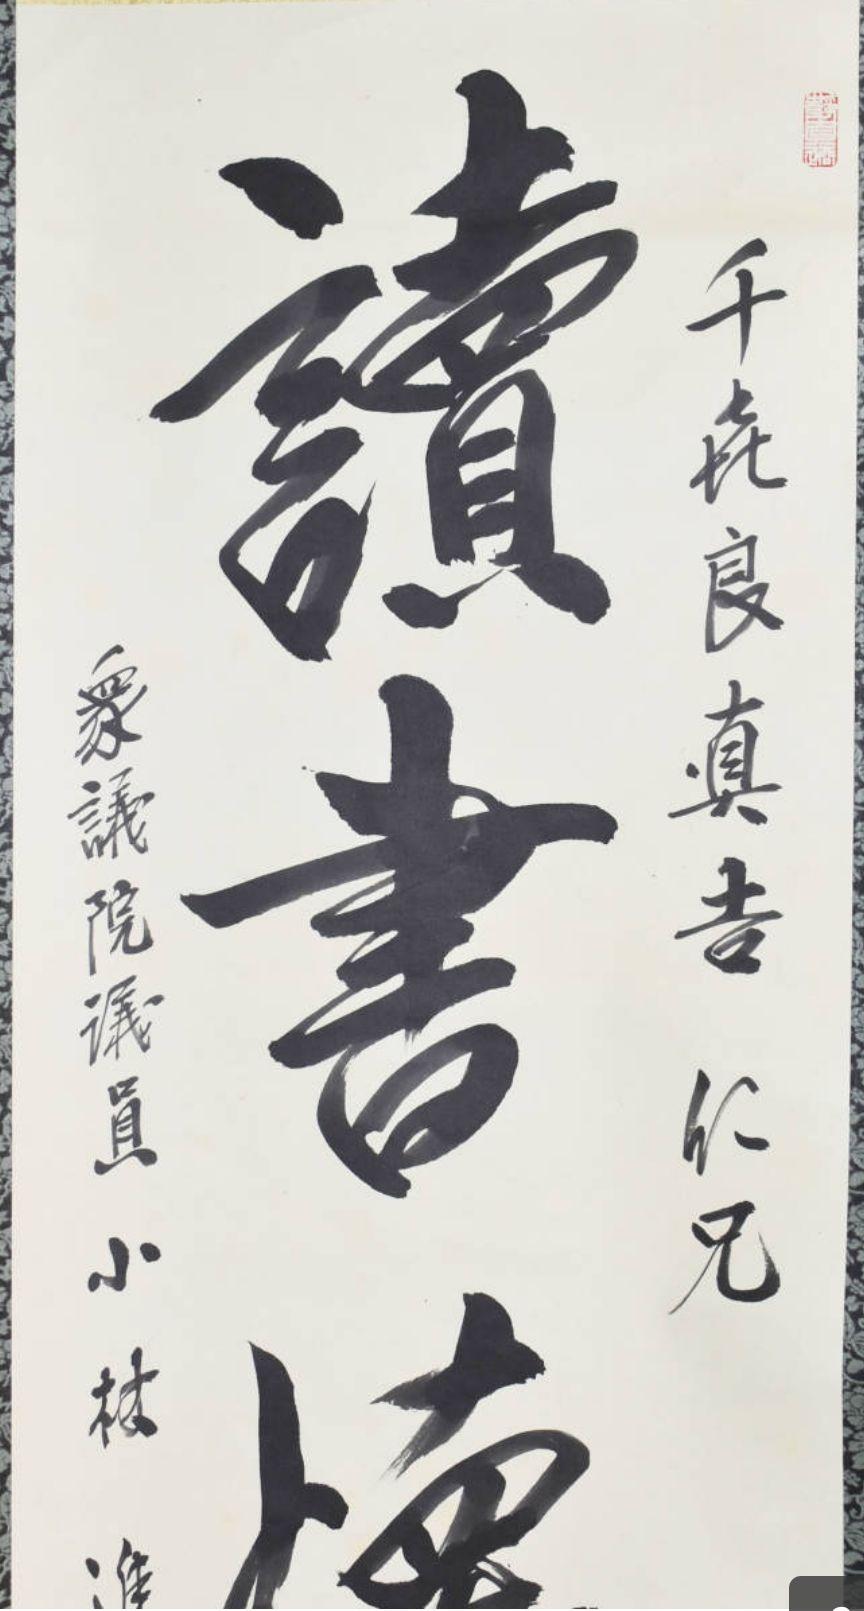 千㐂良真吉 仁兄
讀書
衆議院議員 小林 進